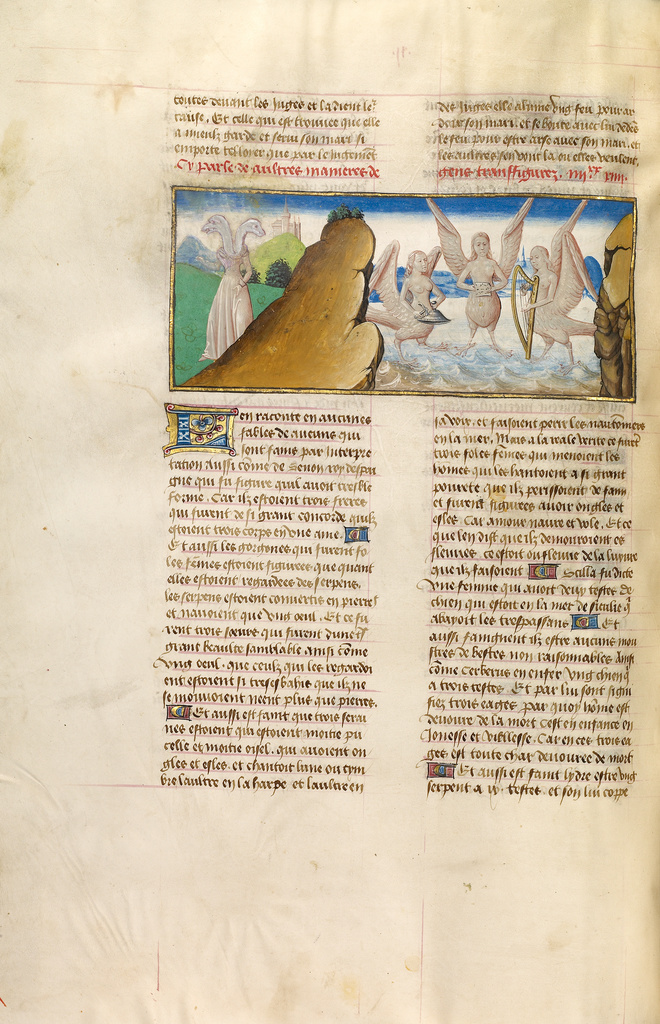 toutes devant les iuges et la dient le^r
cause. Et celle qui est trouvee que elle
a mieulx garde et servi son mari si
emporte tel loier que par le iugement
Cy parle de aultres manieres de
en raconte en aucunes
fables de aucuns qui
sont fains par interpre
tation aussi come de
gne qui fu figure quil avoit treble
forme. Car ilz estoient trois freres
qui furent de si grant concorde quilz
estoient trois corps en une ame.
Et aussi les gorgones qui furent fo
les femes estoient figurees que quant
elles estoient regardees des serpens.
les serpens estoient convertis en pierres
et navoient que ung oeul. Et ce fu
rent trois soeurs qui furent dune
grant beaulte samblable ainsi come
ung oeul. que ceulz qui les regardoi
ent estoient si tres esbahis que ilz ne
se mouvoient neent plus que pierres.
Et aussi est faint que trois serai
nes estoient qui estoient moitie pu
celle et moitie oisel. qui avoient on
gles et esles. et chantoit lune ou cym
bre laultre en la harpe et laultre en
des iuges elle alume ung feu pour ar
doir son mari. et se boute avec lui dedes
le feu pour estre arse avec son mari. et
les aultres sen vont la ou elles veulent.
gens transfigurez. iiii^xx xiii.
sa voix. et faisoient perir les nautoniers
en la mer. Mais a la vraie verite ce furet
trois foles femes qui menoient les
homes qui les hantoient a si grant
povrete que ilz perissoient de faim
et furent figurees avoir ongles et
esles. Car amour navre et vole. Et ce
que len dist que ilz demouroient es
fleuves. ce estoit ou fleuve de la luxure
que ilz faisoient Scilla fu dicte
une femme qui avoit deux testes de
chien qui estoit en la mer de sicilie q^i
abaioit les trespassans Et
aussi faingnent ilz estre aucuns mon
stres de bestes non raisonnables Ainsi
come Cerberus en enfer ung chien q^i
a trois testes. Et par lui sont signi
fiez trois eages par quoy home est
devoure de la mort Cest en enfance en
Jonesse et vieillesse. Car en ces trois ea
ges est toute char devouree de mort
Et aussi est faint lydre estre ung
serpent a testes. et son lui coppe